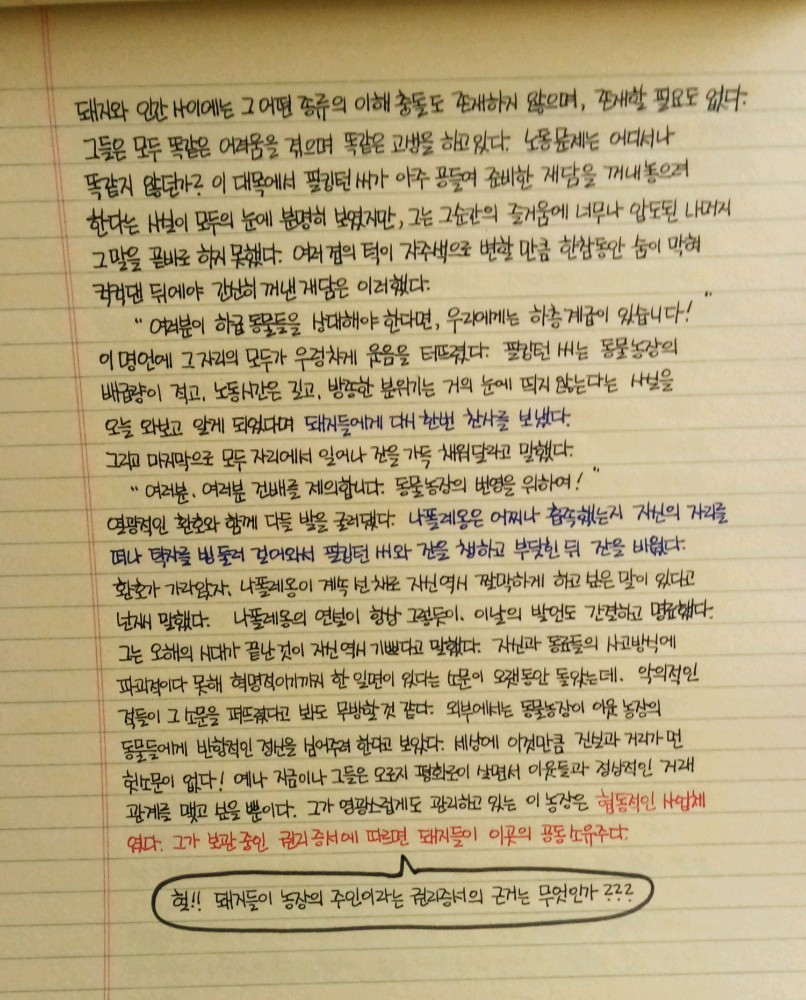 돼지와 인간 사이에는 그 어떤 종류의 이해 충돌도 존재하지 않으며, 존재할 필요도 없다.
그들은 모두 똑같은 어려움을 겪으며 똑같은 고생을 하고 있다. 노동 문제는 어디서나
똑같지 않던가? 이 대목에서 필킹턴 씨가 아주 공들여 준비한 재담을 꺼내 놓으려
한다는 사실이 모두의 눈에 분명히 보였지만, 그는 그 순간의 즐거움에 너무나 압도된 나머지
그 말을 곧바로 하지 못했다. 여러 겹의 턱이 자주색으로 변할 만큼 한참동안 숨이 막혀
컥컥댄 뒤에야 간신히 꺼낸 재담은 이러했다.
" 여러분이 하급 동물들을 상대해야 한다면, 우리에게는 하층 계급이 있습니다! "
이 명언에 그 자리의 모두가 우렁차게 웃음을 터뜨렸다. 필킹턴 씨는 동물농장의
배급량이 적고, 노동시간은 길고, 방종한 분위기는 거의 눈에 띄지 않는다는 사실을
오늘 와보고 알게 되었다며 돼지들에게 다시 한번 찬사를 보냈다.
그리고 마지막으로 모두 자리에서 일어나 잔을 가득 채워달라고 말했다.
" 여러분, 여러분 건배를 제의합니다. 동물농장의 번영을 위하여! "
열광적인 환호와 함께 다들 발을 굴러댔다. 나폴레옹은 어찌나 흡족했는지 자신의 자리를
떠나 탁자를 빙 돌려 걸어와서 필킹턴 씨와 잔을 챙하고 부딪힌 뒤 잔을 비웠다.
환호가 가라앉자, 나폴레옹이 계속 선 채로 자신 역시 짤막하게 하고 싶은 말이 있다고
넌지시 말했다. 나폴레옹의 연설이 항상 그렇듯이, 이날의 발언도 간결하고 명료했다.
그는 오해의 시대가 끝난 것이 자신 역시 기쁘다고 말했다. 자신과 동료들의 사고방식에
파괴적이다 못해 혁명적이기까지 한 일면이 있다는 소문이 오랫동안 돌았는데, 악의적인
적들이 그 소문을 퍼뜨렸다고 봐도 무방할 것 같다. 외부에서는 동물농장이 이웃 농장의
동물들에게 반항적인 정신을 심어주려 한다고 보았다. 세상에 이것만큼 진실과 거리가 먼
헛소문이 없다! 예나 지금이나 그들은 오로지 평화로이 살면서 이웃들과 정상적인 거래
관계를 맺고 싶을 뿐이다. 그가 영광스럽게도 관리하고 있는 이 농장은 협동적인 사업체
였다. 그가 보관 중인 권리 증서에 따르면 돼지들이 이곳의 공동소유주다.
헐!! 돼지들이 농장의 주인이라는 권리증서의 근거는 무엇인가???